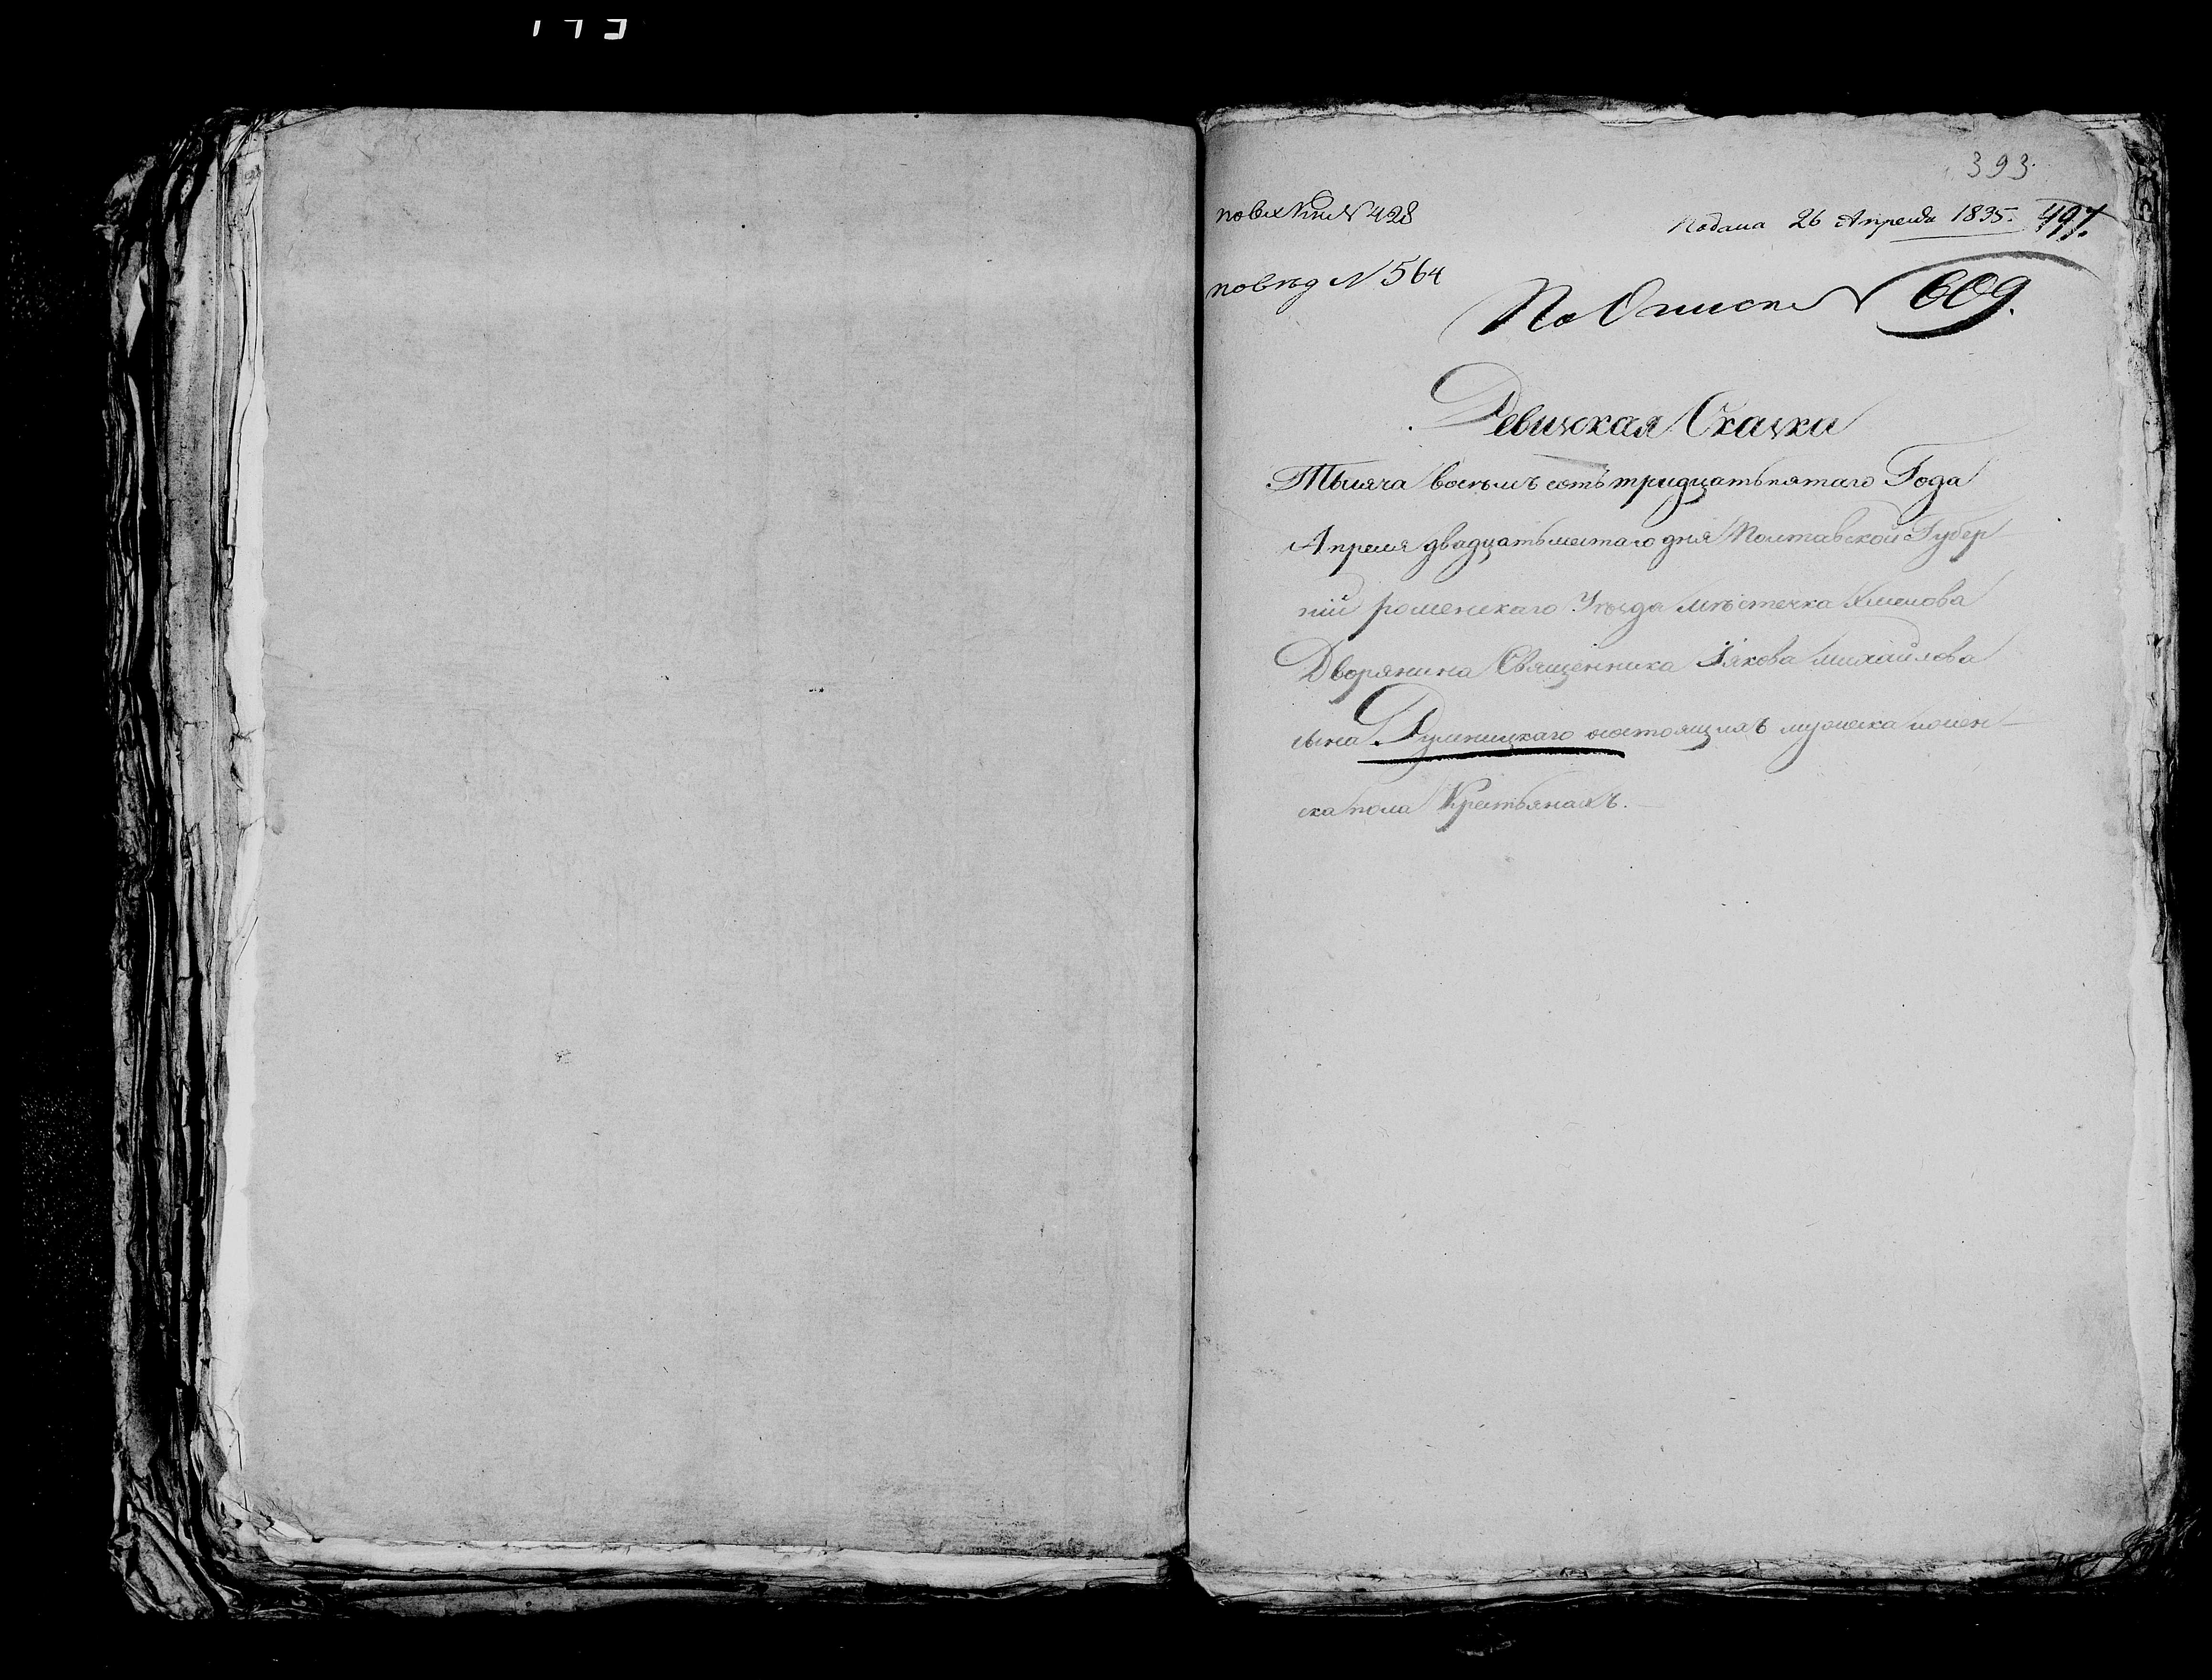 393.
по вх кни № 428
Подана 26 Апреля 1835.
по вед № 564
По Описи № 609.
Ревизская Сказка
Тысяча восемъ сотъ тридцать пятаго Года
Апреля двадцать шестаго дня Полтавской Губер-
нiи роменскаго Уезда местечка Хмелова
Дворянина Священника Iякова михайлова
сына Думницкаго о состоящихъ мужеска и жен-
ска пола Крестьянахъ.